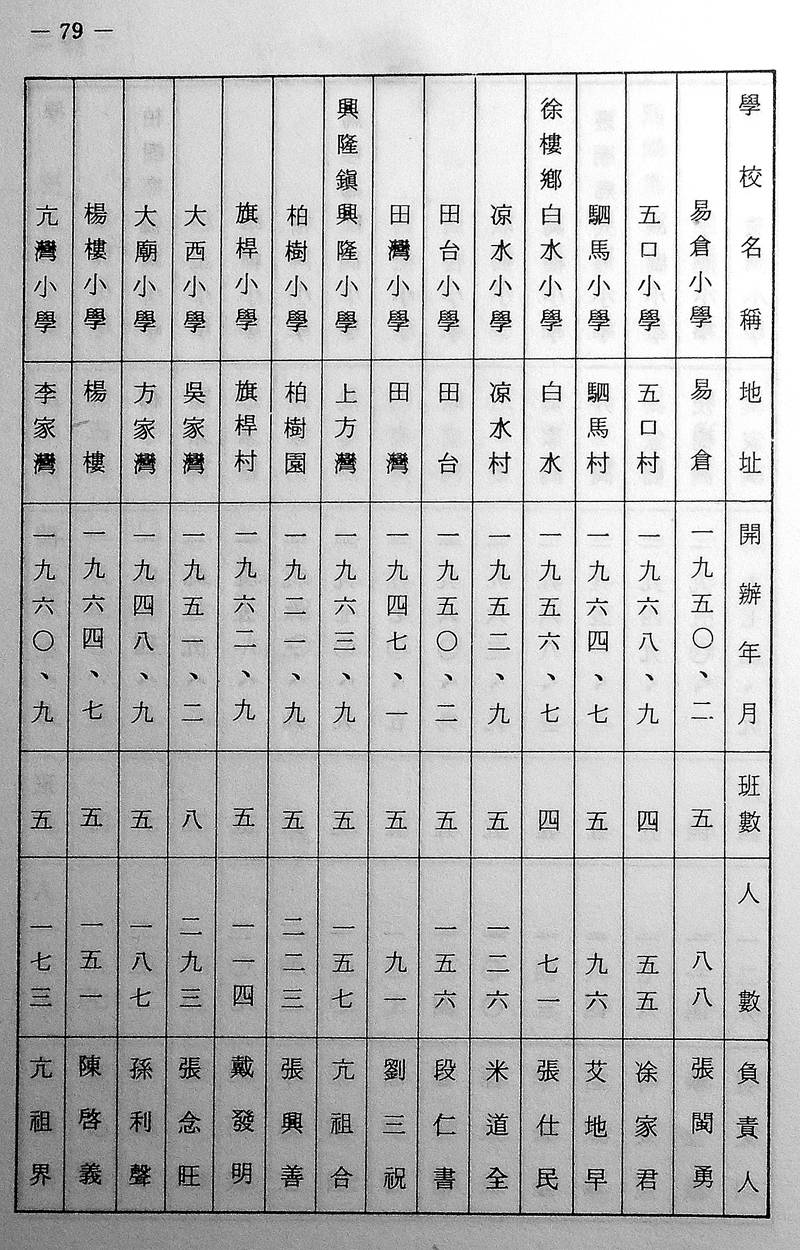 — 79 —
學校名稱 地址 開辦年月 班數 人數 負責人
易倉小學 易倉 一九五〇、二 五 八八 張閩勇
五口小學 五口村 一九六八、九 四 五五 涂家君
駟馬小學 駟馬村 一九六四、七 五 九六 艾地早
徐樓鄉白水小學 白水 一九五六、七 四 七一 張仕民
凉水小學 凉水村 一九五二、九 五 一二六 米道全
田台小學 田台 一九五〇、二 五 一五六 段仁書
田灣小學 田灣 一九四七、一 五 九一 劉三祝
興隆鎮興隆小學 上方灣 一九六三、九 五 一五七 亢祖合
柏樹小學 柏樹園 一九二一、九 五 二二三 張興善
旗桿小學 旗桿村 一九六二、九 五 一一四 戴發明
大西小學 吳家灣 一九五一、二 八 二九三 張念旺
大廟小學 方家灣 一九四八、九 五 一八七 孫利聲
楊樓小學 楊樓 一九六四、七 五 一五一 陳啓義
亢灣小學 李家灣 一九六〇、九 五 一七三 亢祖界